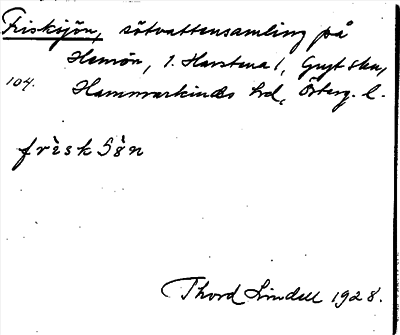 Frisksjön, sötvattensamling på
Hemön, 1. Harstena 1, Gryt skn,
104. Hammarkinds hd, Österg. l.
frisksön
Thord Lindell 1928.